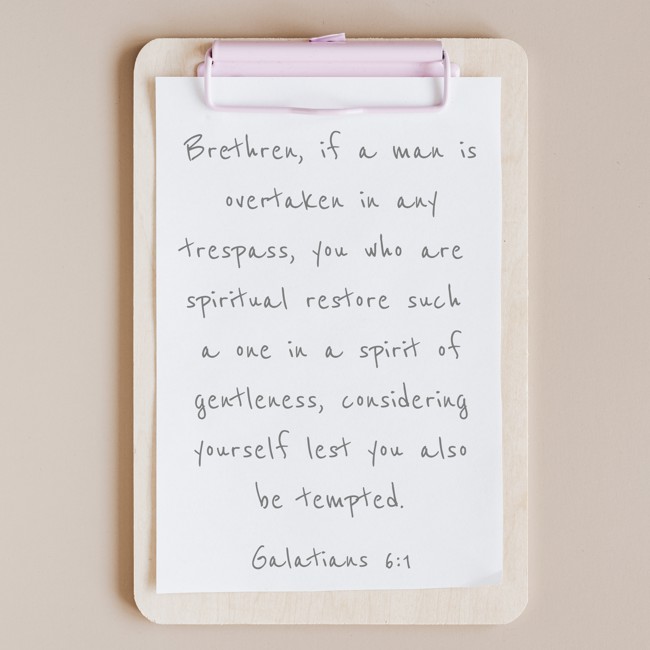 Brethren, if a man is
overtaken in any
trespass, you who are
spiritual restore such
a one in a spirit of
gentleness, considering
yourself lest you also
be tempted.
Galatians 6:1